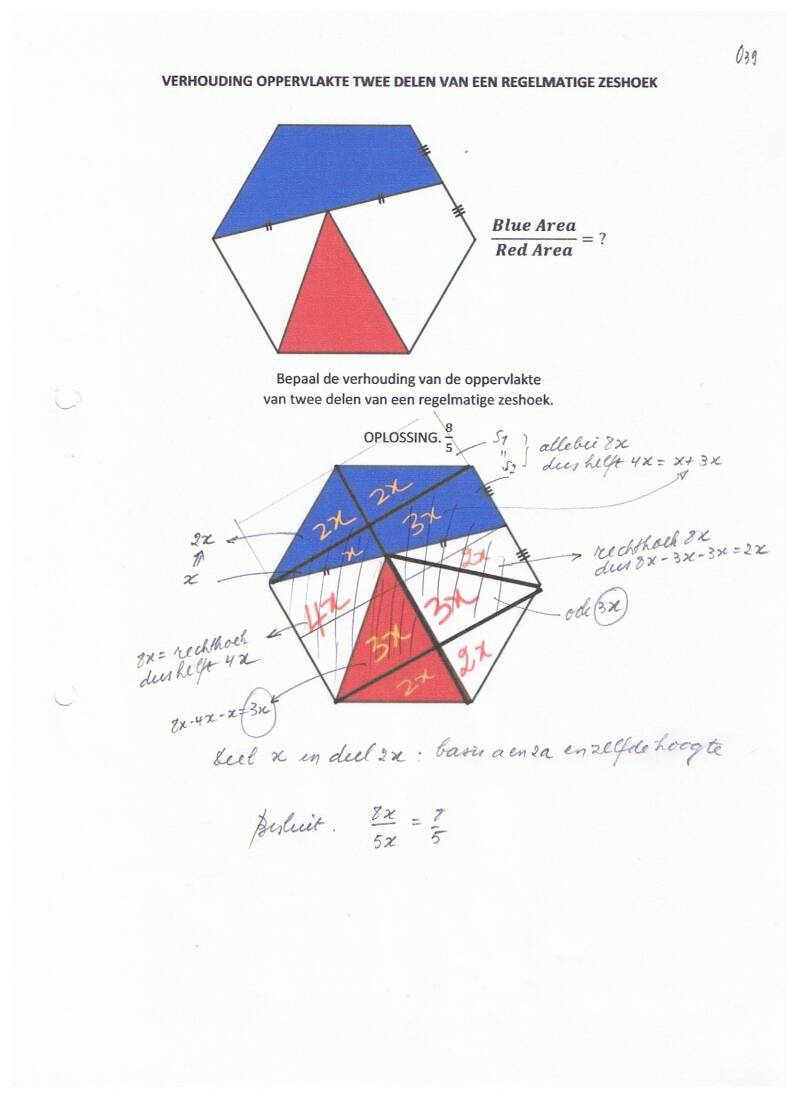 039
VERHOUDING OPPERVLAKTE TWEE DELEN VAN EEN REGELMATIGE ZESHOEK
Blue Area
Red Area
= ?
Bepaal de verhouding van de oppervlakte
van twee delen van een regelmatige zeshoek.
OPLOSSING. 8/5
S1
"
S2
} allebei 8x
dus helft 4x = x + 3x
2x
2x
3x
x
2x
x
2x
rechthoek 8x
dus 8x-3x-3x=2x
4x
3x
3x
ook 3x
8x = rechthoek
dus helft 4x
2x
2x
8x-4x-x=3x
Deel x en deel 2x : basis a en 2a en zelfde hoogte
Besluit. 8x/5x = 8/5